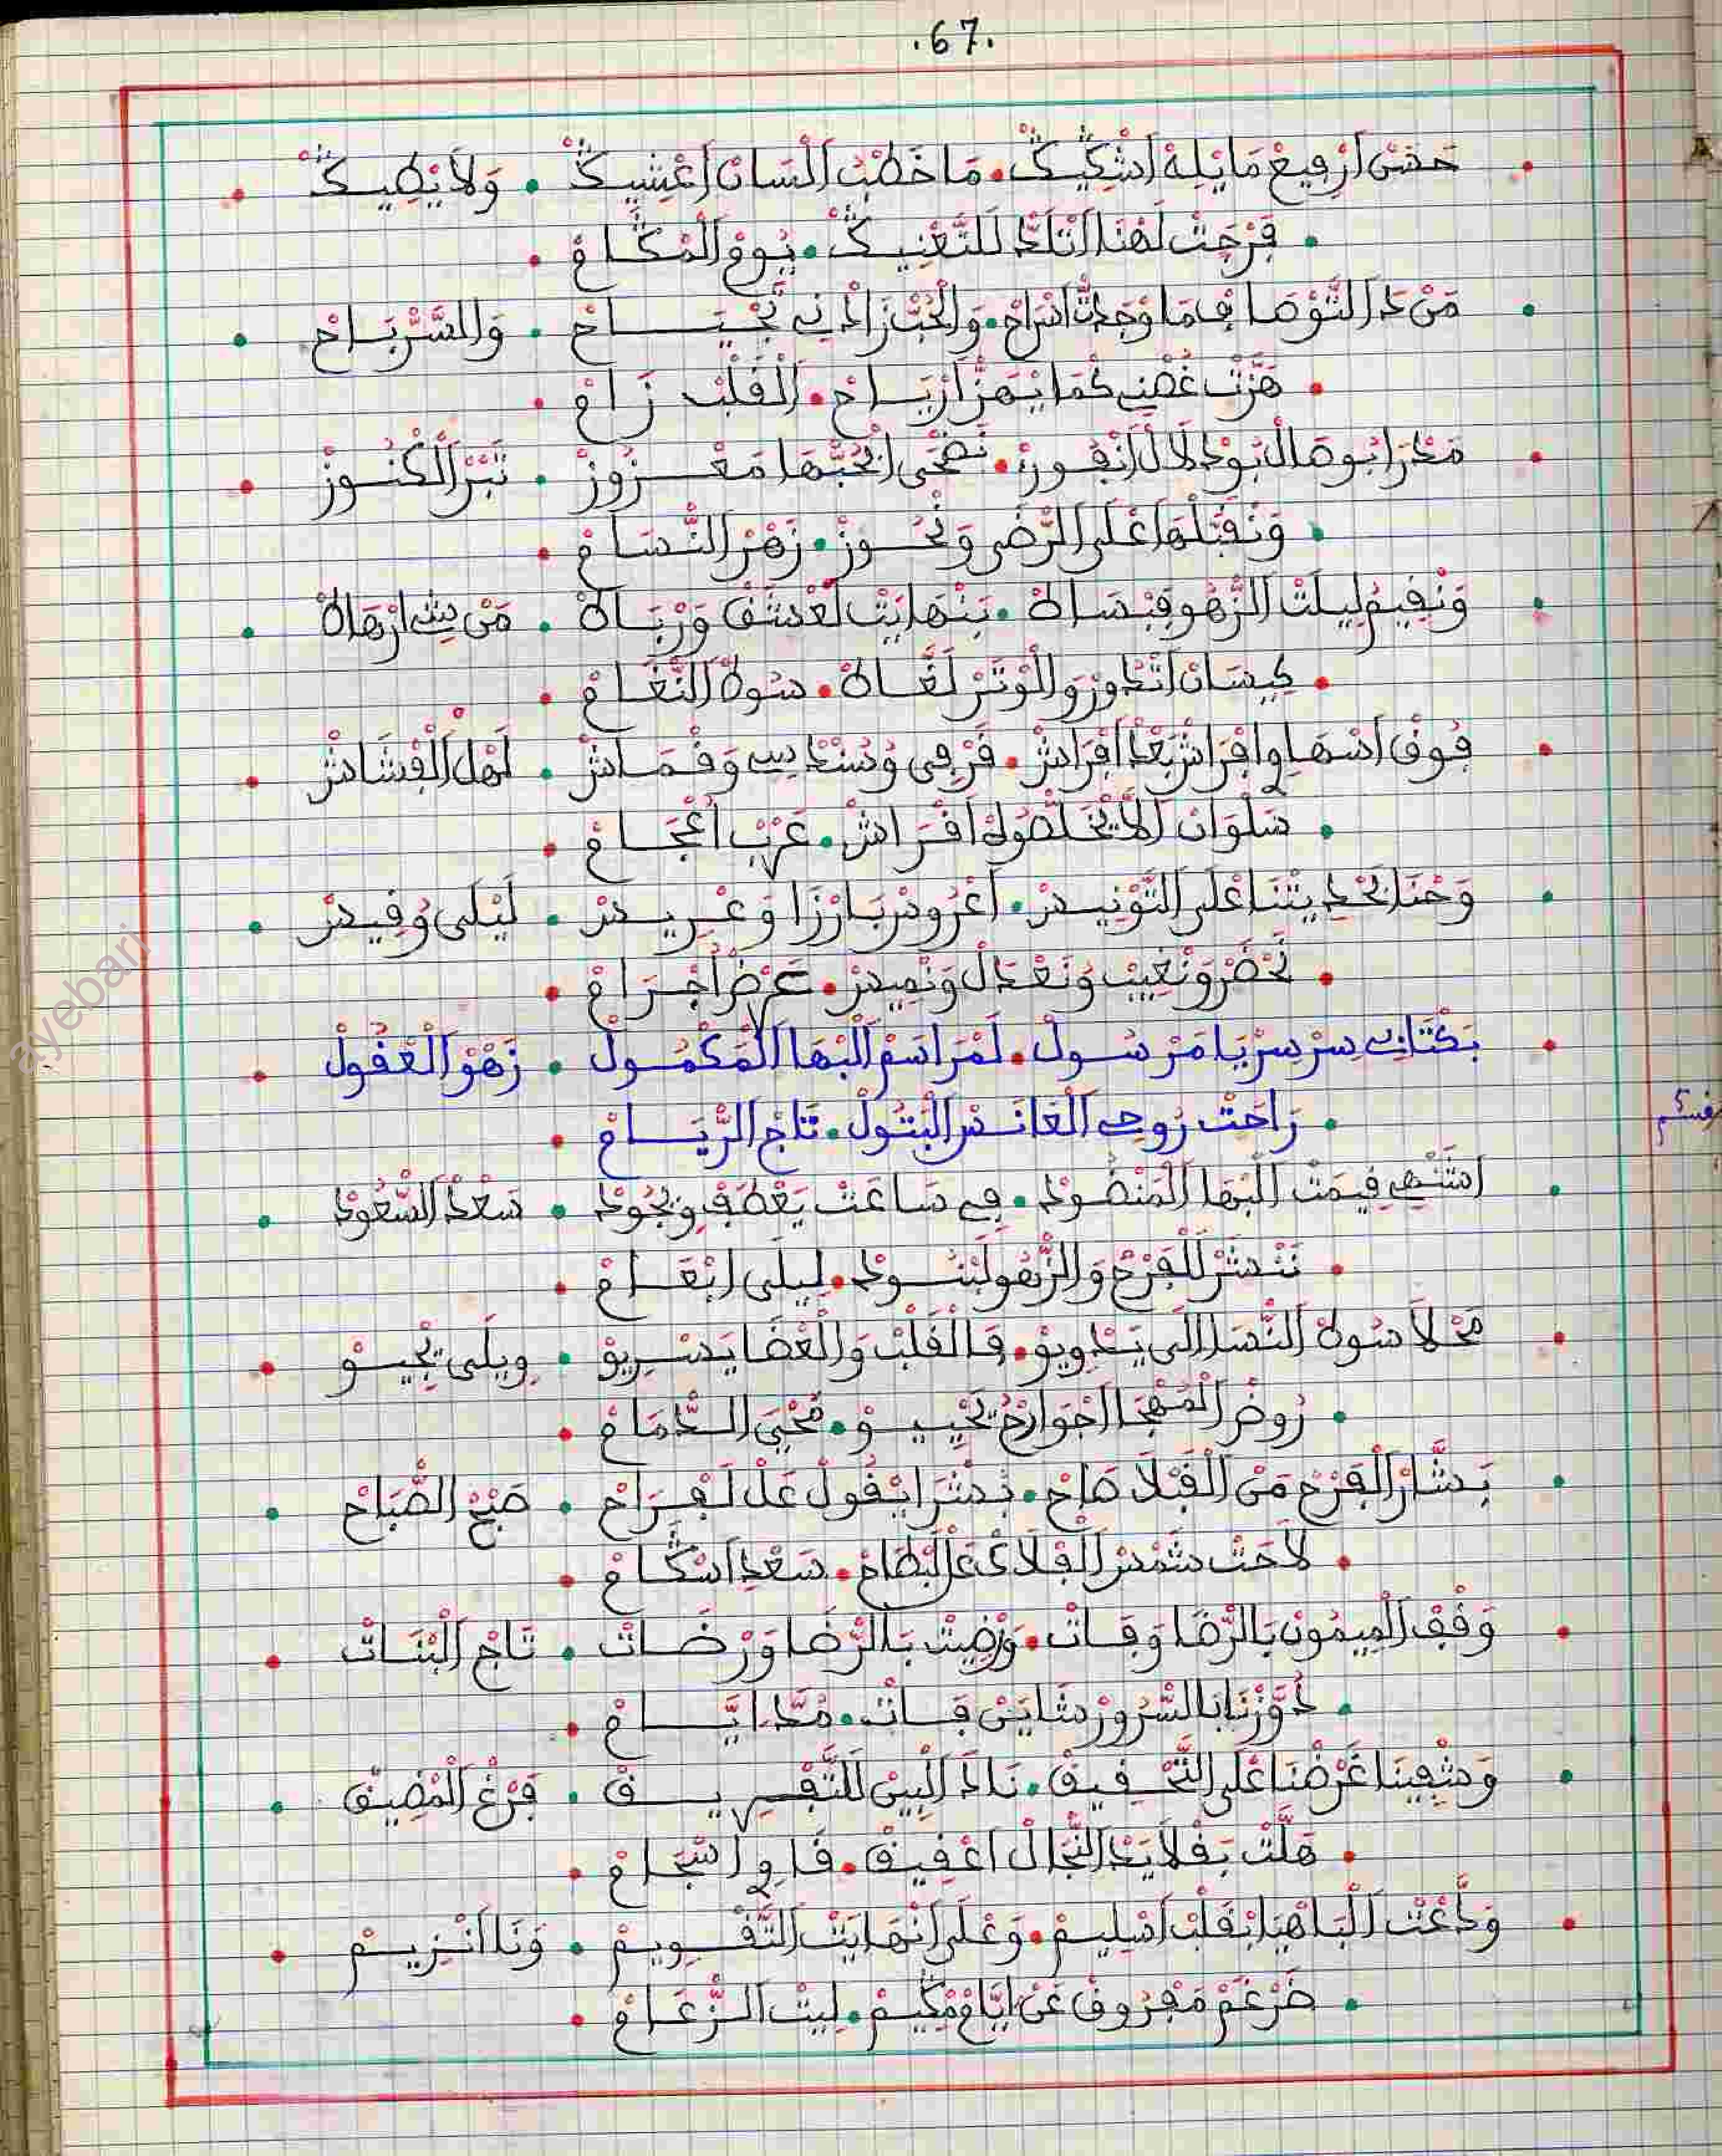 .67.
حصن ارفيع ما يله اشكيك • ما خطب السان اعشيك • ولا يطيك
فرحت لهنا اتلذ للتغنيك • يوم المكام
من ذ التوها فما وجدت اسراح • والحب زادني تجياح • والسر باح
هزت غصني كما يهز ارياح • القلب زام
مذرا بوها ال بو دلال انفوز • نضحى ابحبها معزوز • نبر الكنوز
ونقبلها على الرضى ونحوز • زهر النسام
ونقيم ليلت الزهو فبساط • بنهايت لعشق ورباط • من بت ارهاط
كيسان اتدور والوتر لغاط • سوط النغام
فوق اسهاوا فراش بعد افراش • فرمي وسندسي وقماش • اهل القشاش
سلوان لا يخلصوله افراش • عرب اعجام
وحنا بحديثنا على التونيس • اعروس بارزا وعريس • ليلى وقيس
نحضر ونغيب ونعدل ونميس • عرض اجرام
بكتابي سر سر يا مرسول • لمراسم البها المكمول • زهو العقول
راحت روحي الغانس البتول • تاج الريام
اشتهي قيمت البها المنضود • في ساعت يعطف ويجود • سعد السعود
نتشر للفرح والزهو لبنود • ليلى ابغام
محلا سوط النسا الى يدويو • فالقلب والعضا يسريو • ويلى يجيو
روض المهجا اجوارح تحييو • محيي الدمام
بشار الفرح من القبلا صاح • بشرا يقول عل لفراح • صبح الصباح
لاحت شمس الفلاك عل البطاح • سعد اسكام
وقف الميمون بالرضا وقات • ورضيت بالرضا ورضات • تاج البنات
حوزنا بالسرور شاين فات • مد ايام
وشفينا غرضنا على التحقيق • ناذ البين للتفريق • فرغ المضيق
هلت بقلايد النجال اعقيق • فاو اسجام
ودعت الباهيا بقلب اسليم • وعلى انهايت التقويم • ونا انزيم
ضرغم مفروق عن ايام مكيم • ليت الزعام
ayebari